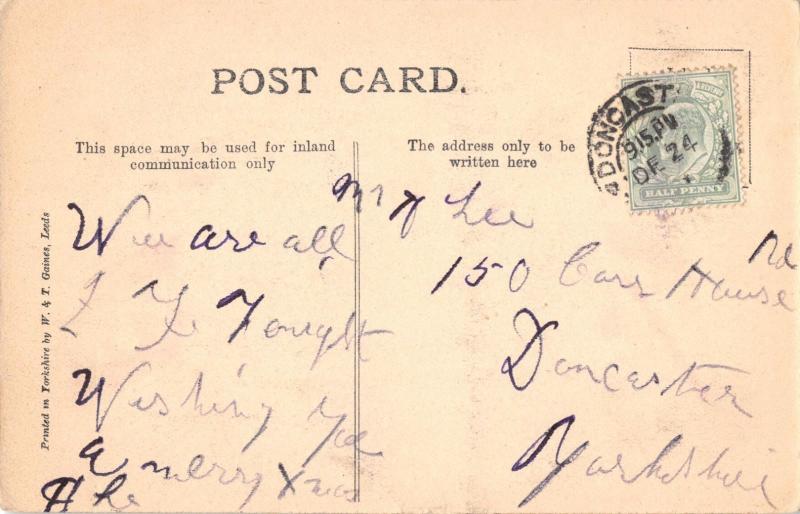 POST CARD.
This space may be used for inland
communication only
The address only to be
written here
DONCAST
915.PM
DE 24
HALF PENNY
Printed in Yorkshire by W. & T. Gaines, Leeds
Wee are all
Tonight
Wishing you
a merry Xmas
Lee
150 Carr House Rd
Doncaster
Yorkshire